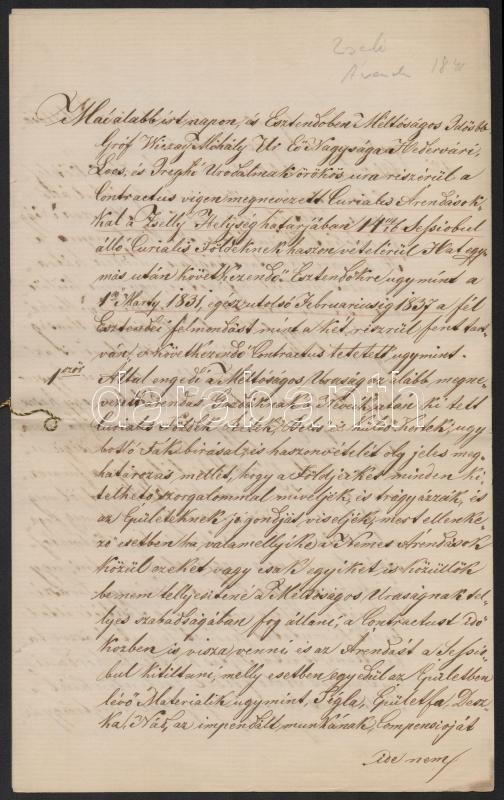 Zseli
Árenda 18
Mai alább irt napon, és Esztendőben Méltóságos Idősbb
Gróf Wiczay Mihály Úr Eő Nagysága Hedervári,
Loós, és Pregh Uradalmak örökös ura részérül a
Contractus végen megnevezett Curialis Árendások-
kal a Zselly Helység határjában 14 Sessiobul
álló Curialis Földeknek haszon vételérül Hat egy-
más után következendő Esztendőkre ugymint a
1ső Marty 1831 egész utolsó Februariusig 1837 a fél
Esztendei felmondást mint a két részrül fent tart-
ván, a következendő Contractus tétetett ugymint.
1ször Által engedi a Méltóságos Uraság az alább megne-
vezett Árendás
Curialis
botló Fák birásat, és haszonvételét oly jeles meg-
határozás mellet, hogy a Földjeiket minden ki
telhető szorgalommal miveljék, és trágyázzák, és
az Épületeknek jó gondját viseljék, mert ellenke-
ző esetben ha valamellyike a Nemes Árendások
közül ezeket, vagy csak egyikét is közülök
be nem tellyesítené a Méltóságos Uraságnak tel-
lyes szabadságában fog állani, a Contractust idő
közben is vissza venni és az Árendást a Sessio-
bul kitiltani, melly esetben egyedül az Épületben
lévő Materialék ugymint, Tégla, Épületfa, Desz-
ka, Nád, az impendált munkának Compensioját
ide nem
darabanth